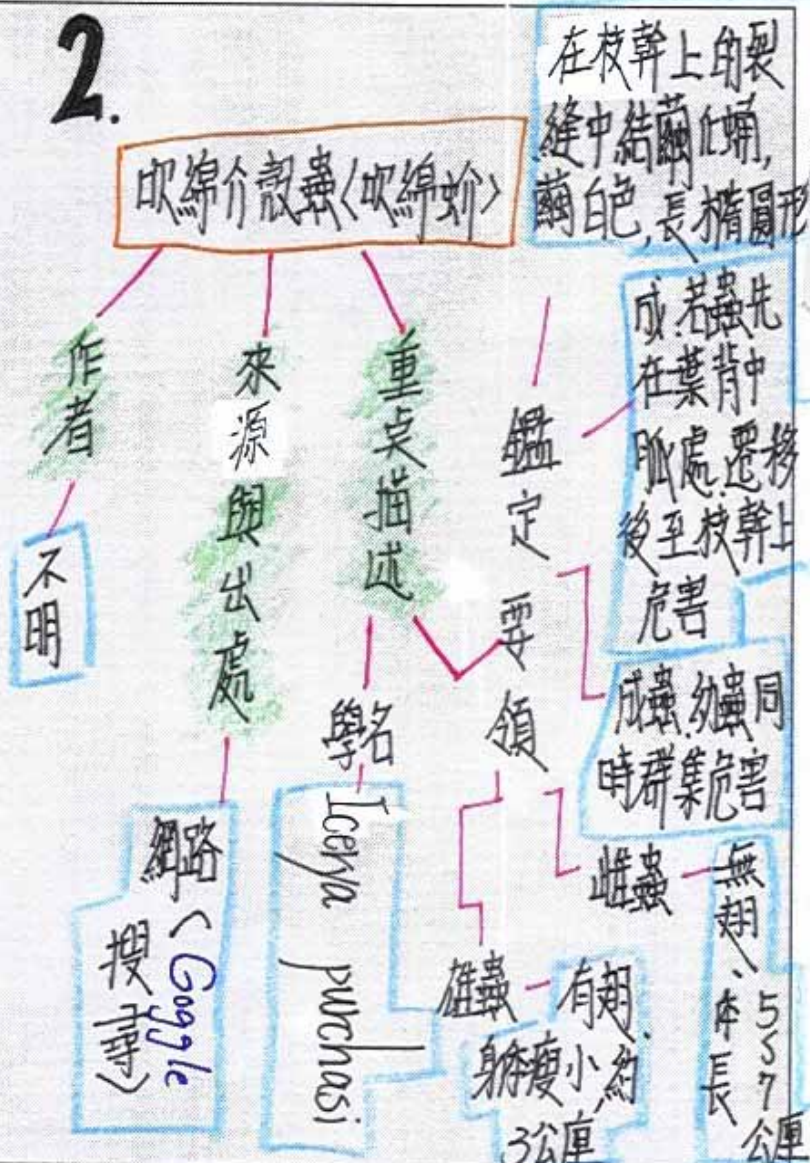 2.
吹綿介殼蟲<吹綿蚧>
作者
不明
來源與出處
網路<Google
搜尋>
重点描述
學名
Icerya purchasi
鑑定要領
在枝幹上的裂
縫中結繭化蛹,
繭白色,長橢圓形
成.若蟲先
在葉背中
脈處.遷移
後至枝幹上
危害
成蟲.幼蟲同
時群集危害
雌蟲
無翅、体長
5~7公厘
雄蟲
有翅.
身体瘦小,約
3公厘